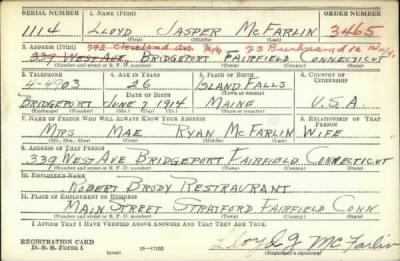 SERIAL NUMBER 1. NAME (Print) ORDER NUMBER
1114 LLOYD JASPER MCFARLIN 3465
(First) (Middle) (Last)
2. ADDRESS (Print) 792 Cleveland Ave.
339 WEST AVE. BRIDGEPORT FAIRFIELD CONNECTICUT
(Number and street or R. F. D. number) (Town) (County) (State)
3. TELEPHONE 4. AGE IN YEARS 5. PLACE OF BIRTH 6. COUNTRY OF CITIZENSHIP
4-4903 26 ISLAND FALLS
DATE OF BIRTH (Town or county)
BRIDGEPORT JUNE 7 1914 MAINE U.S.A.
(Exchange) (Number) (Mo.) (Day) (Yr.) (State or country)
7. NAME OF PERSON WHO WILL ALWAYS KNOW YOUR ADDRESS 8. RELATIONSHIP OF THAT PERSON
MRS. MAE RYAN MCFARLIN WIFE
(Mr., Mrs., Miss) (First) (Middle) (Last)
9. ADDRESS OF THAT PERSON
339 WEST AVE BRIDGEPORT FAIRFIELD CONNECTICUT
(Number and street or R. F. D. number) (Town) (County) (State)
10. EMPLOYER'S NAME
ROBERT BRODY RESTRAURANT
11. PLACE OF EMPLOYMENT OR BUSINESS
MAIN STREET STRATFORD FAIRFIELD CONN
(Number and street or R. F. D. number) (Town) (County) (State)
I AFFIRM THAT I HAVE VERIFIED ABOVE ANSWERS AND THAT THEY ARE TRUE.
REGISTRATION CARD
D. S. S. Form 1 (over) 16-17105 Lloyd J McFarlin
(Registrant's signature)